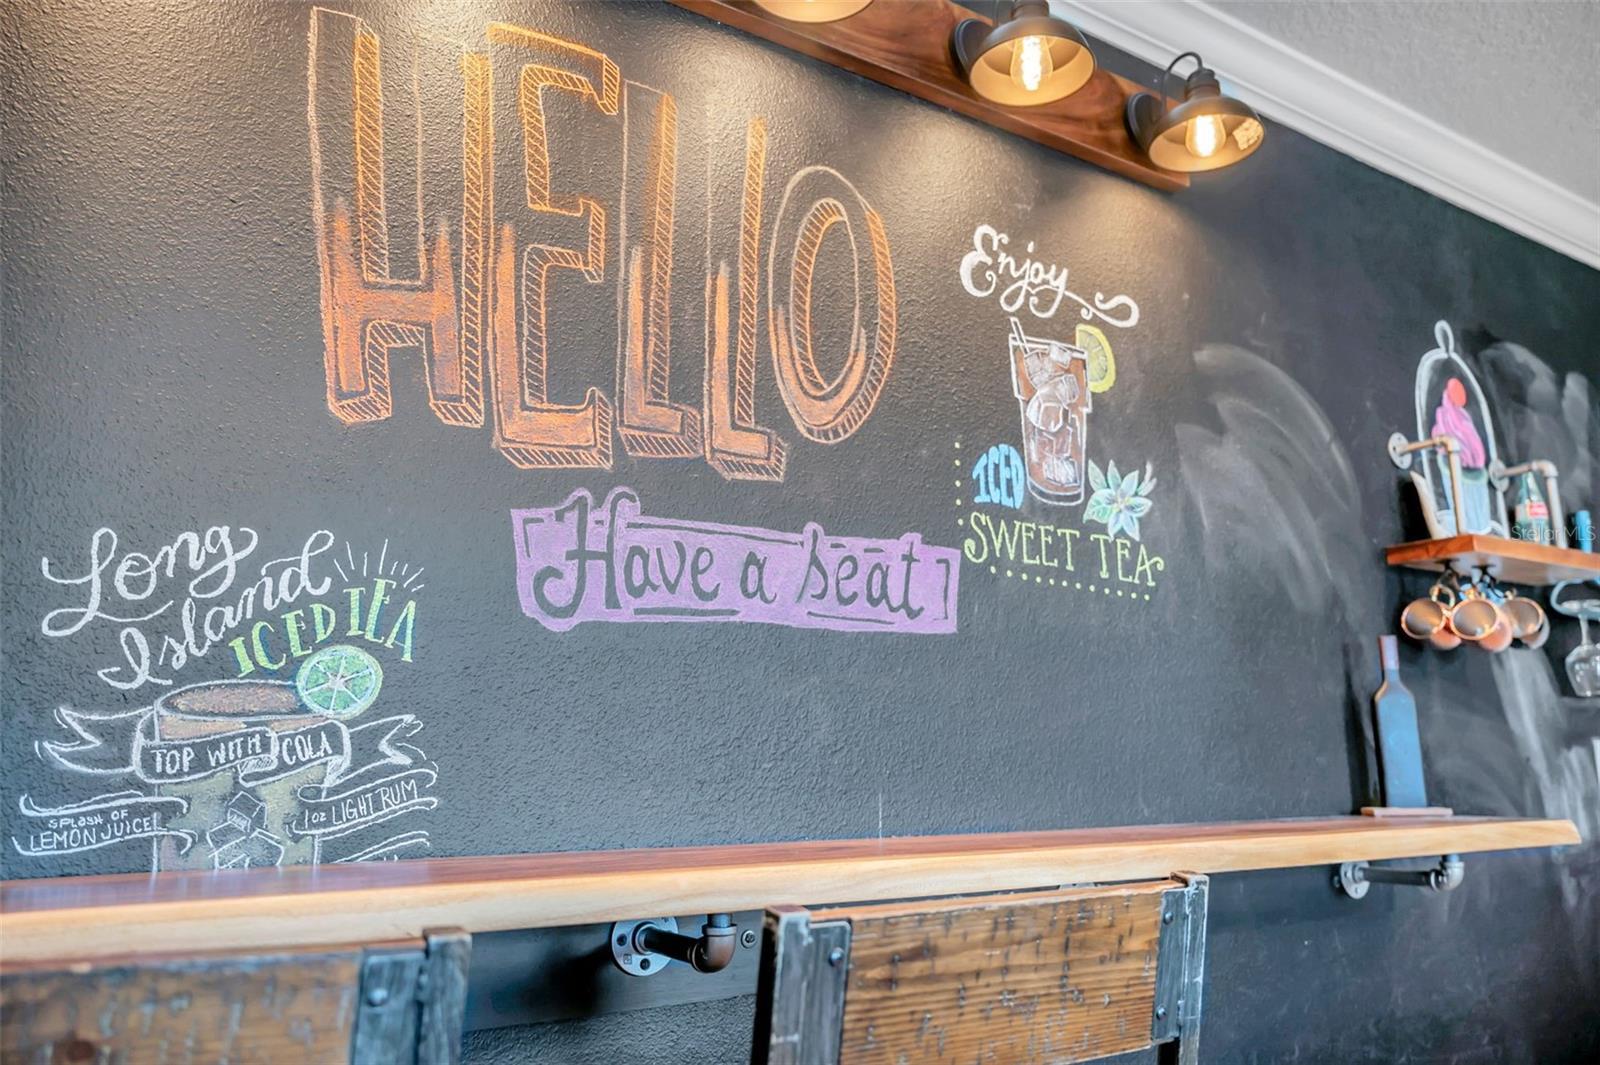 HELLO
Have a seat
Enjoy
ICED
SWEET TEA
Long
Island
ICED TEA
TOP WITH COLA
SPLASH OF
LEMON JUICE
1 oz LIGHT RUM
Stellar MLS